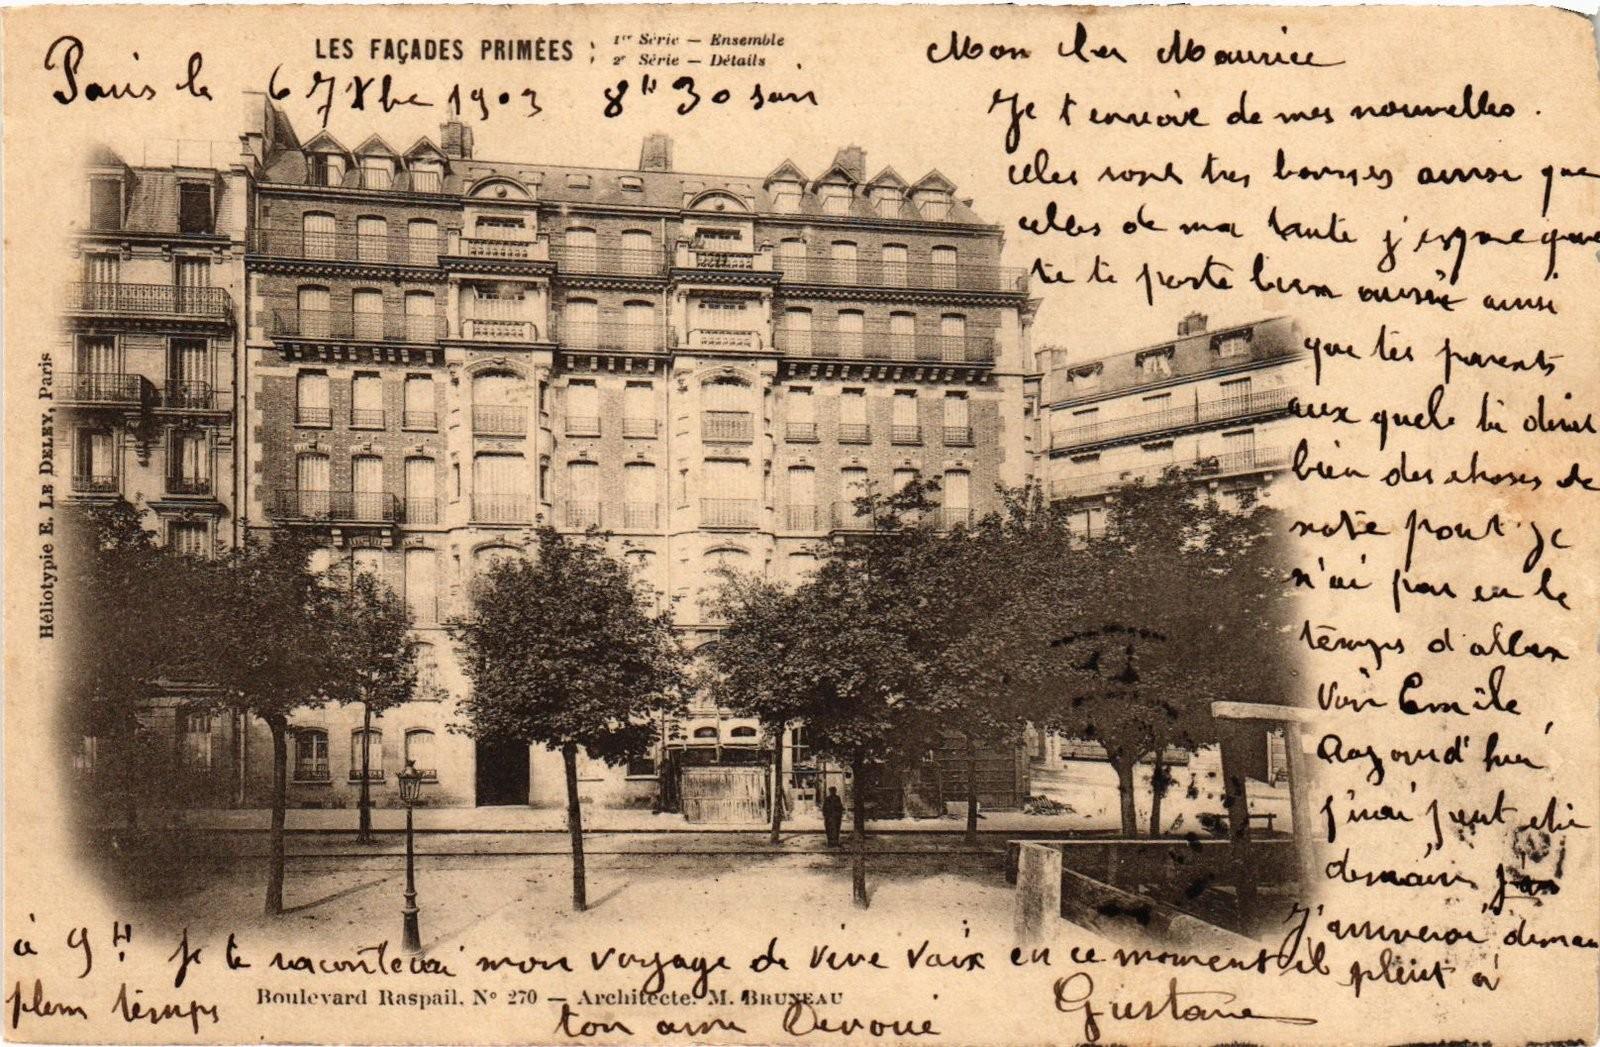 LES FAÇADES PRIMÉES : 1re Série — Ensemble
2e Série — Détails
Paris le 6 7 Xbe 1903 8H 30 soir
Héliotypie E. LE DELEY, Paris
Mon cher Maurice
Je t envoie de mes nouvelles.
celes sont tres bonnes ainsi que
celles de ma tante j'espere que
tu te porte bien aussi ainsi
que tes parents
aux quels tu diras
bien des choses de
notre part je
n'ai pas eu le
temps d'aller
voir Emile
Aujourd'hui
j'irai
demain
J'arriverai demain
à 9H. Je te raconterai mon voyage de vive voix en ce moment il pleut à
plein temps
Boulevard Raspail. No 270 — Architecte. M. BRUNEAU
ton ami Devoué Gustave